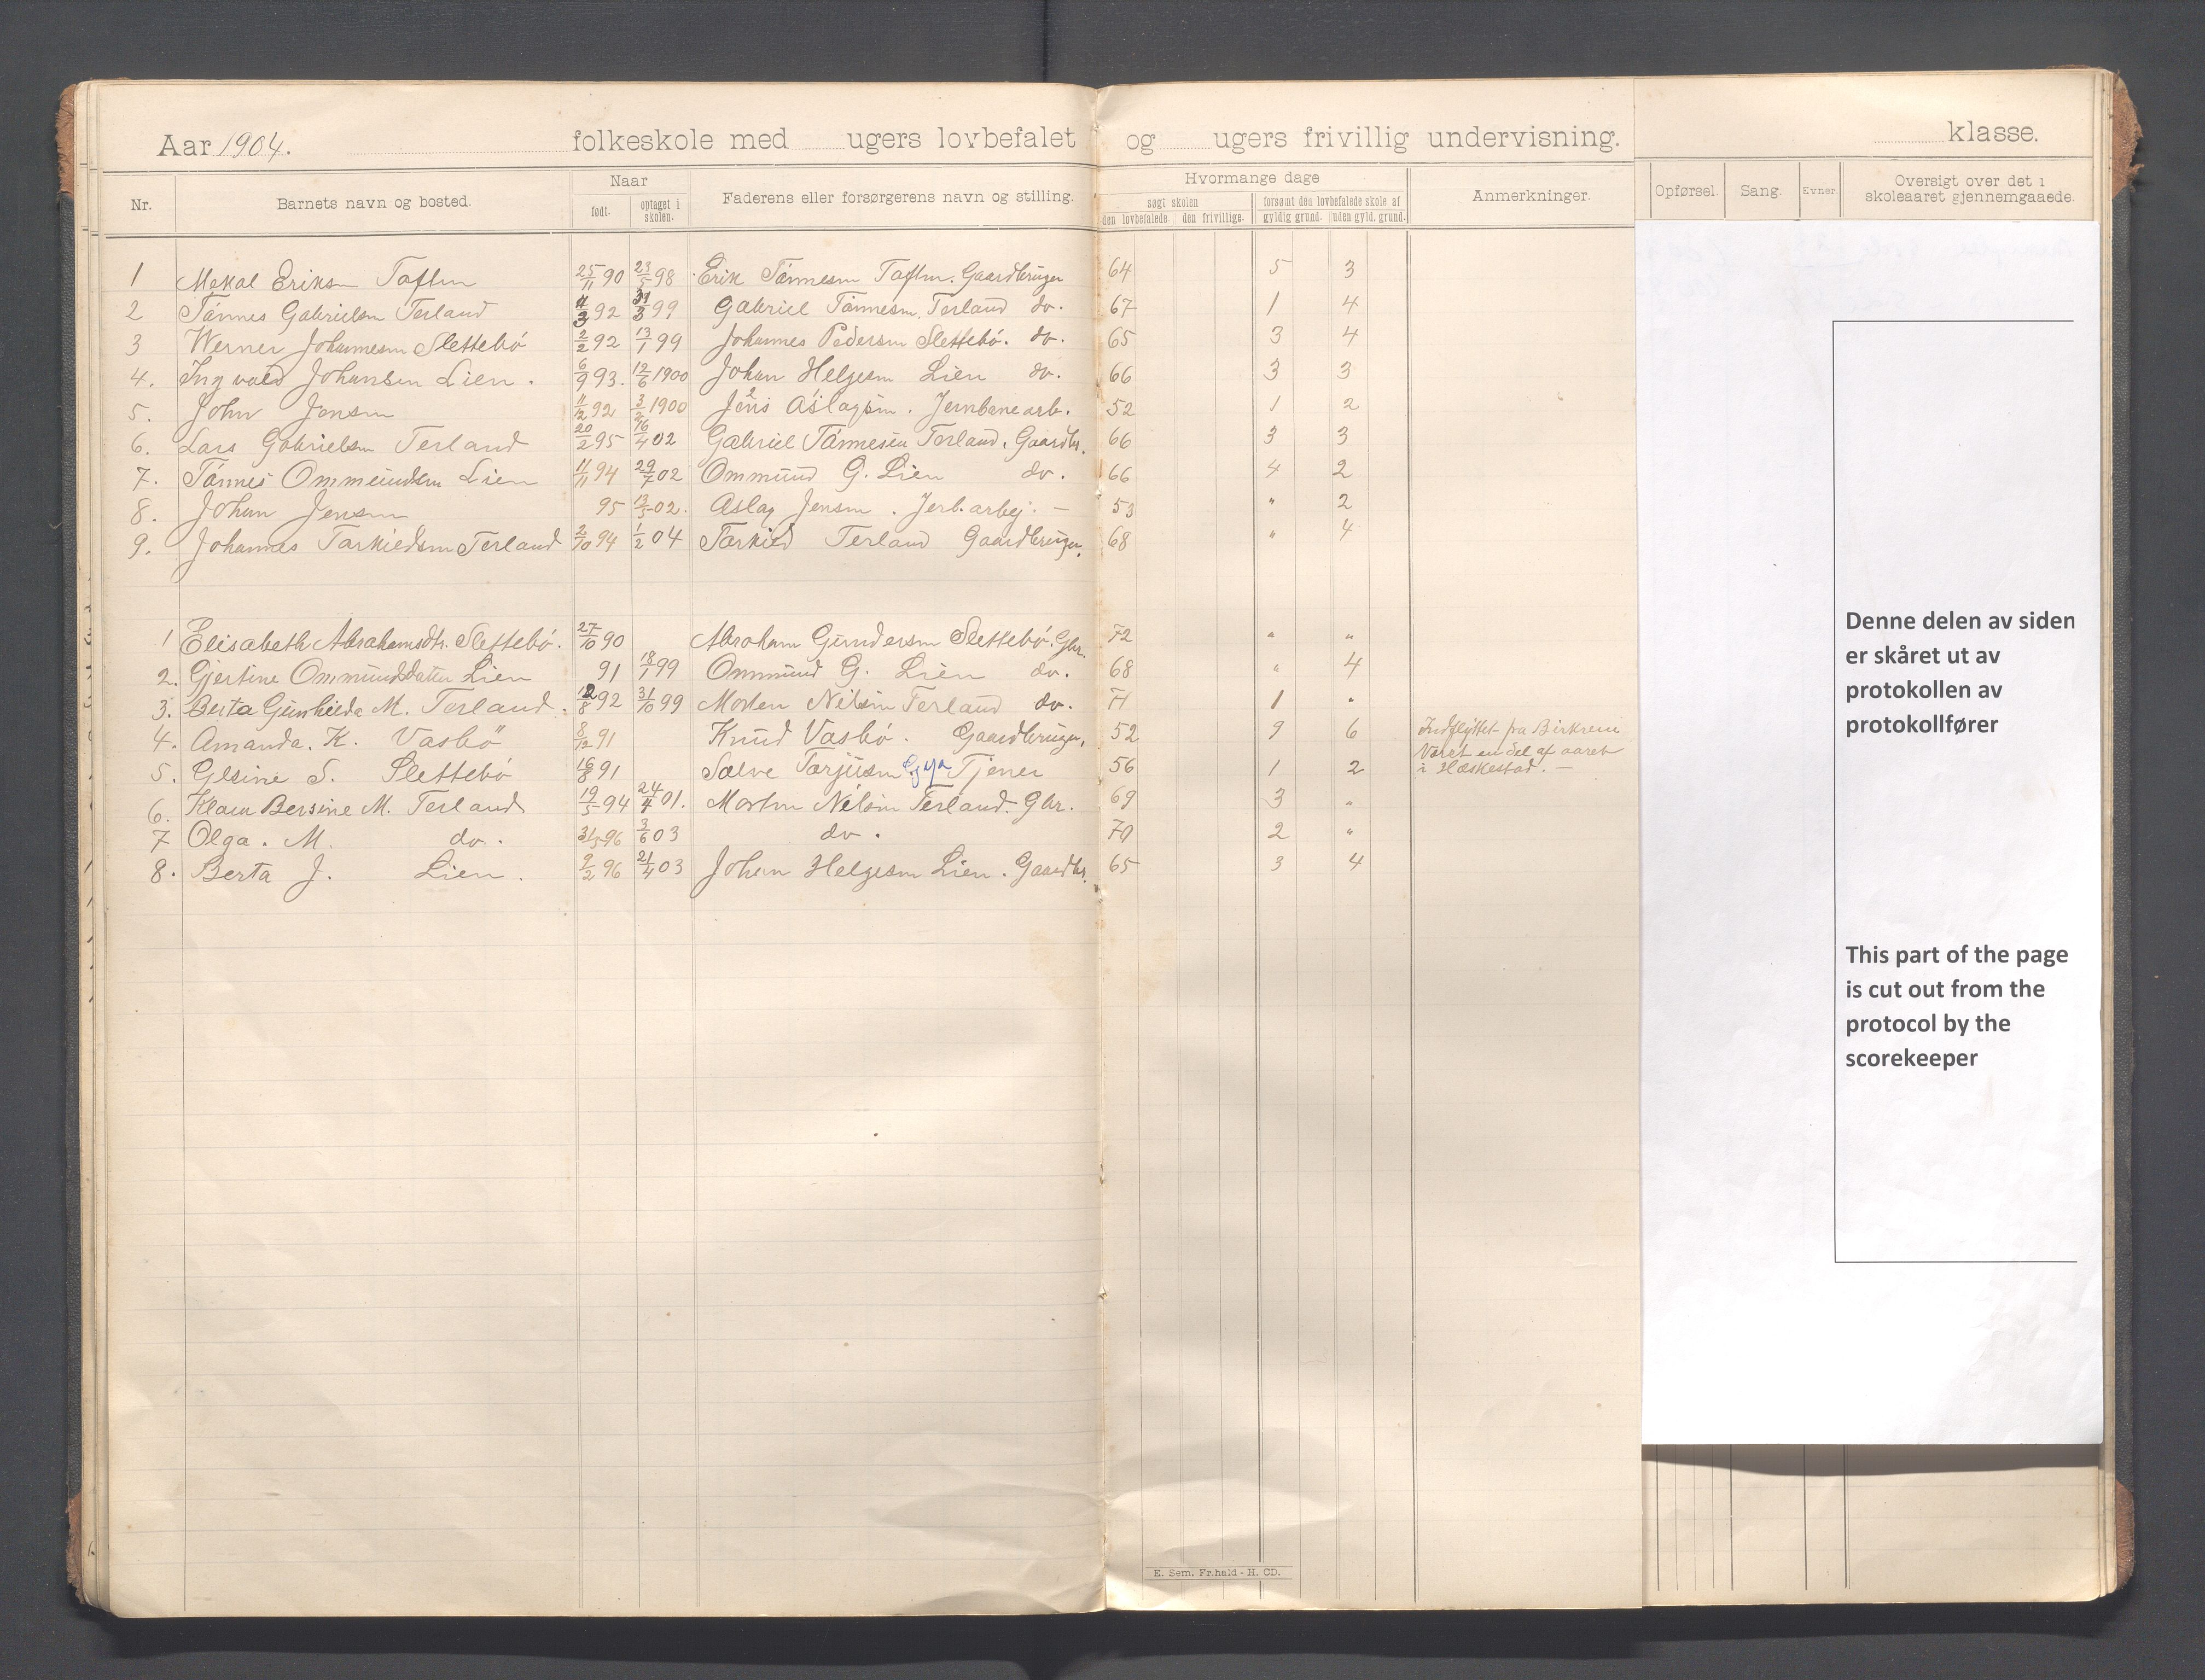 Aar 1904. folkeskole med ugers lovbefalet og ugers frivillig undervisning. klasse.
Nr. Barnets navn og bosted. Naar født. optaget i skolen. Faderens eller forsørgerens navn og stilling. Hvormange dage søgt skolen den lovbefalede. den frivillige. forsømt den lovbefalede skole af gyldig grund. uden gyld. grund. Anmerkninger. Opførsel. Sang. Evner. Oversigt over det i skoleaaret gjennemgaaede.
1 Mekal Eriksen 25/11 90 23/5 98 Erik Tønnesen Gaardbruger 64 5 3
2 Tønnes Gabrielsen Terland 92 99 Gabriel Tønnesen Terland do. 67 1 4
3 Werner Johannesen Slettebö 2/2 92 13/1 99 Johannes Pedersen Slettebö. do. 65 3 4
4. Ingvald Johansen Lien. 6/9 93. 12/6 1900 Johan Helgesen Lien do. 66 3 3
5. John Jensen 11/12 92 3/2 1900 Jens Aslagsen. Jernbanearb. 52 1 2
6. Lars Gabrielsen Terland 20/2 95 16/4 02 Gabriel Tønnesen Terland. Gaardbr. 66 3 3
7. Tønnes Ommundsen Lien 11/11 94 29/7 02 Ommund G. Lien do. 66 4 2
8. Johan Jensen 95 13/5 02. Aslag Jensen. Jerb.arbej. — 53 " 2
9. Johannes Tarkieldsen Terland 2/10 94 1/2 04 Tarkield Terland Gaardbruger. 68 " 4
1 Elisabeth Abrahamsdtr. Slettebö. 27/10 90 Abraham Gundersen Slettebö. Gbr. 72 " "
2. Gjertine Ommundsdatter Lien 91 18/1 99 Ommund G. Lien do. 68 " 4
3. Berta Gunhilda M. Terland. 92 31/10 99 Morten Nilsen Terland do. 71 1 "
4. Amanda. K. Vasbö 8/12 91 Knud Vasbö. Gaardbruger. 52 9 6 Indflyttet fra Birkrem
5. Glsine S. Slettebö 16/8 91 Salve Tarjusen Gya Tjener 56 1 2 Været en del af aaret i Hæskestad. —
6. Klara Bersine M. Terland 19/5 94 24/4 01. Morten Nilsen Terland. Gbr. 69 3 "
7 Olga. M. do. 31/5 96 3/6 03 do. 70 2 "
8. Berta J. Lien. 9/2 96 21/4 03 Johan Helgesen Lien. Gaardbr. 65 3 4
Denne delen av siden
er skåret ut av
protokollen av
protokollfører
This part of the page
is cut out from the
protocol by the
scorekeeper
E. Sem. Fr.hald - H. CD.